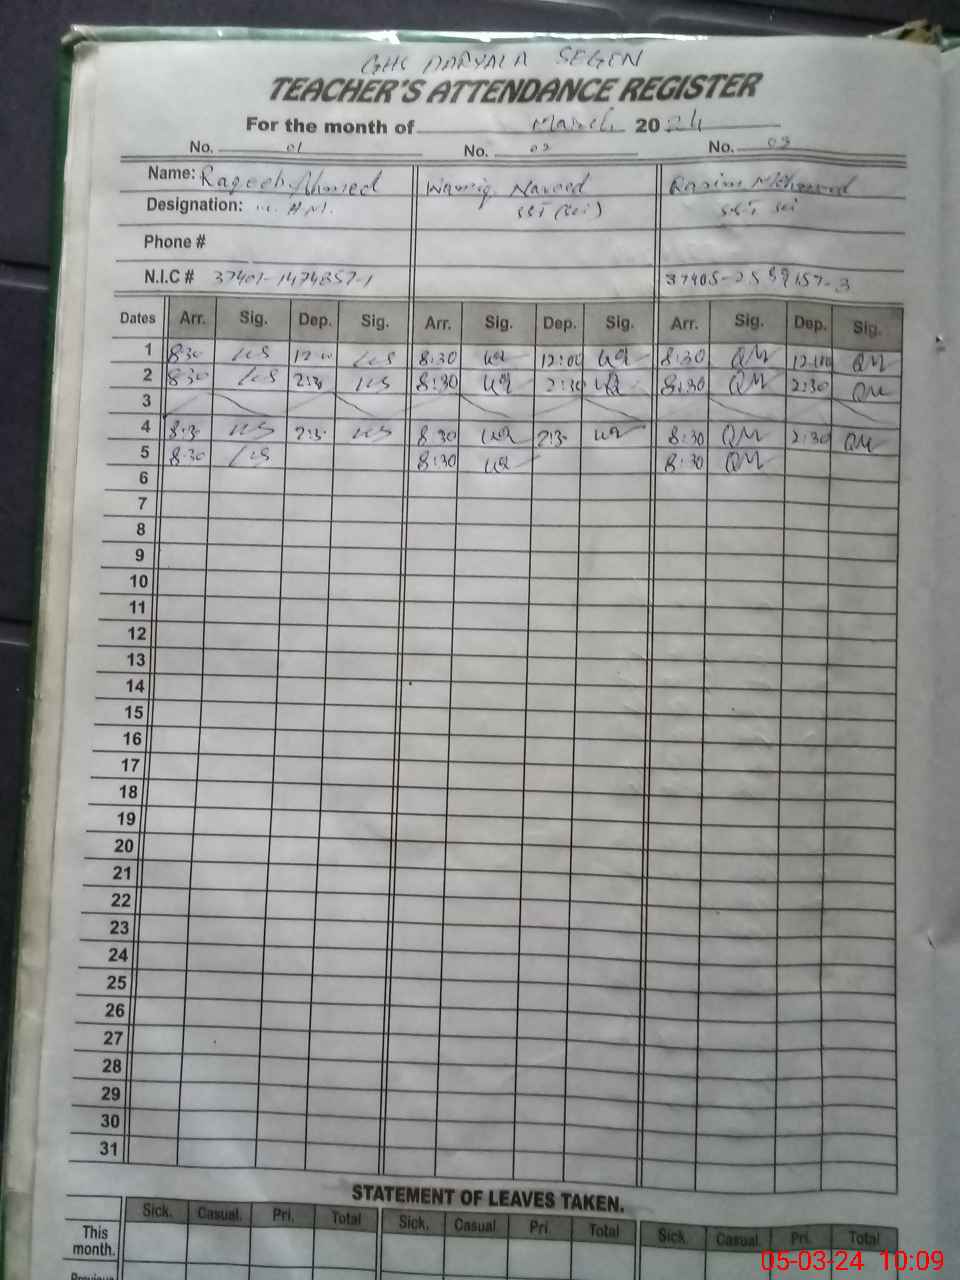 GHS DARYALA SEGEN
TEACHER'S ATTENDANCE REGISTER
For the month of March 2024
No. 01 No. 02 No. 03
Name: Raqeeb Ahmed Wamiq Naveed
Designation: SST (Sci) SST Sci
Phone #
N.I.C # 37401-1474857-1 37405-2559157-3
Dates Arr. Sig. Dep. Sig. Arr. Sig. Dep. Sig. Arr. Sig. Dep. Sig.
1 8:30 12:00 8:30 12:00 8:30 QM 12:00 QM
2 8:30 2:30 8:30 2:30 8:30 QM 2:30 QM
3
4 8:30 2:30 8:30 2:30 8:30 QM 2:30 QM
5 8:30 8:30 8:30 QM
6
7
8
9
10
11
12
13
14
15
16
17
18
19
20
21
22
23
24
25
26
27
28
29
30
31
STATEMENT OF LEAVES TAKEN.
Sick. Casual. Pri. Total Sick. Casual. Pri. Total Sick. Casual. Pri. Total
This
month.
Previous
05-03-24 10:09